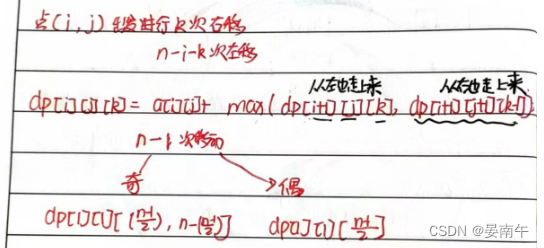 点(i,j)出发进行k次右移
n-i-k次左移
从左边走上来 从右边走上来
dp[i][j][k] = a[i][j]+ max(dp[i+1][j][k], dp[i+1][j+1][k-1]);
n-1次移动
奇 偶
dp[1][1][(n-1/2), n-(n/2)] dp[1][1][n-1/2]
CSDN @晏南午